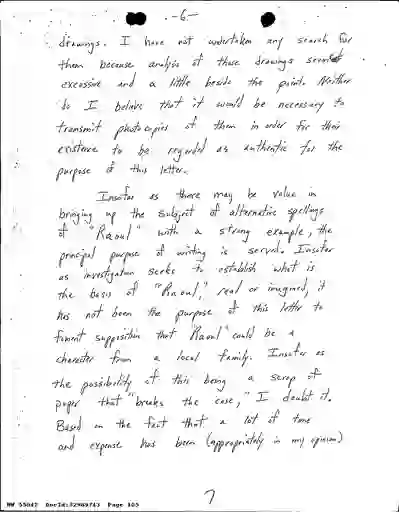 -6-
drawings. I have not undertaken any search for
them because analysis of those drawings seemed
excessive and a little beside the point. Neither
do I believe that it would be necessary to
transmit photocopies of them in order for their
existence to be regarded as authentic for the
purpose of this letter.
Insofar as there may be value in
bringing up the subject of alternative spellings
of "Raoul" with a strong example, the
principal purpose of writing is served. Insofar
as investigation seeks to establish what is
the basis of "Raoul," real or imagined, it
has not been the purpose of this letter to
foment supposition that "Raoul" could be a
character from a local family. Insofar as
the possibility of this being a scrap of
paper that "breaks the case," I doubt it.
Based on the fact that a lot of time
and expense has been (appropriately in my opinion)
7
NW 55042 DocId:32989743 Page 105